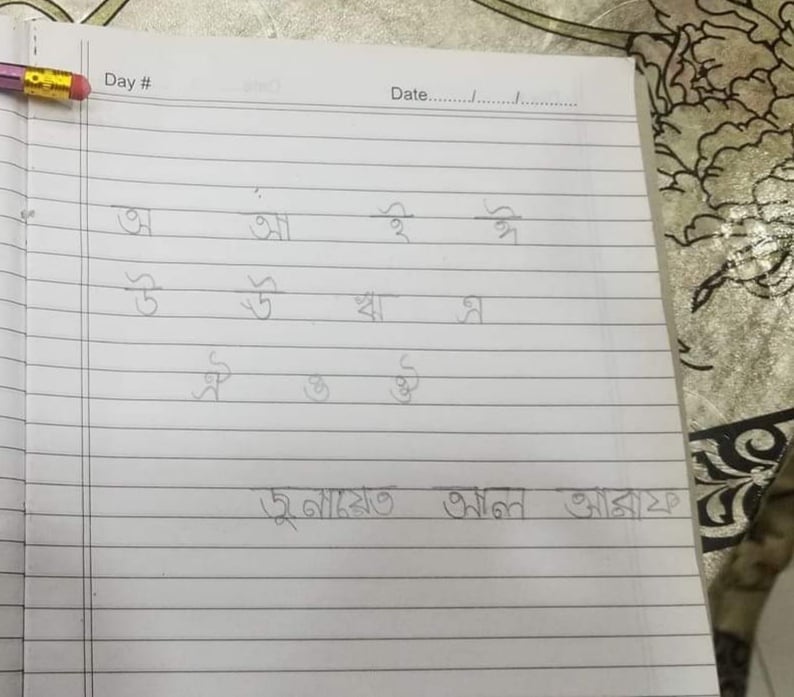 Day #
Date........./........./............
অ আ ই ঈ
উ ঊ ঋ এ
ঐ ও ঔ
জুনায়েত আল আরাফ